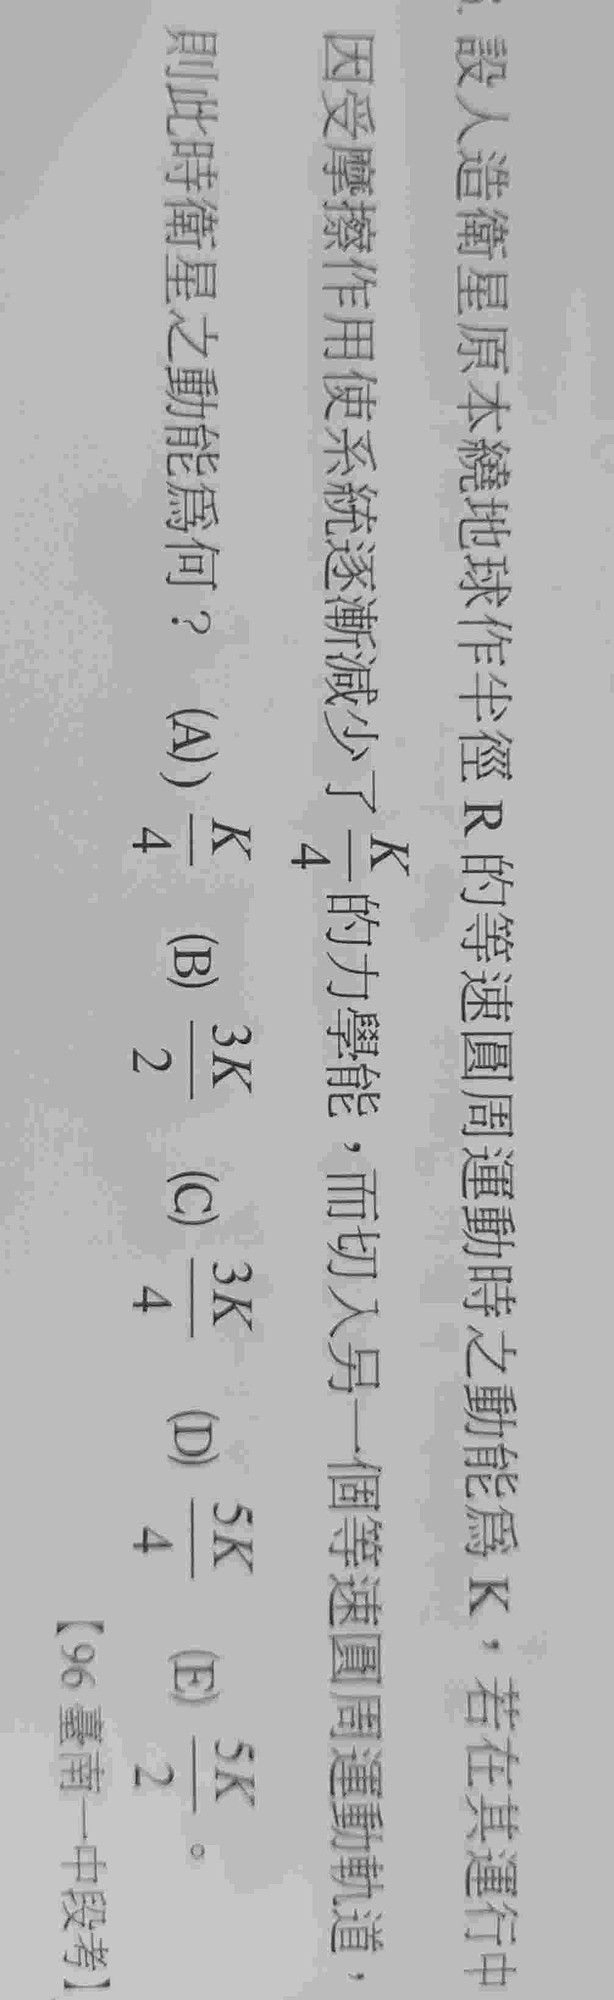 . 設人造衛星原本繞地球作半徑 R 的等速圓周運動時之動能為 K，若在其運行中
因受摩擦作用使系統逐漸減少了 K/4 的力學能，而切入另一個等速圓周運動軌道，
則此時衛星之動能為何？ (A)) K/4 (B) 3K/2 (C) 3K/4 (D) 5K/4 (E) 5K/2 。
【96 臺南一中段考】